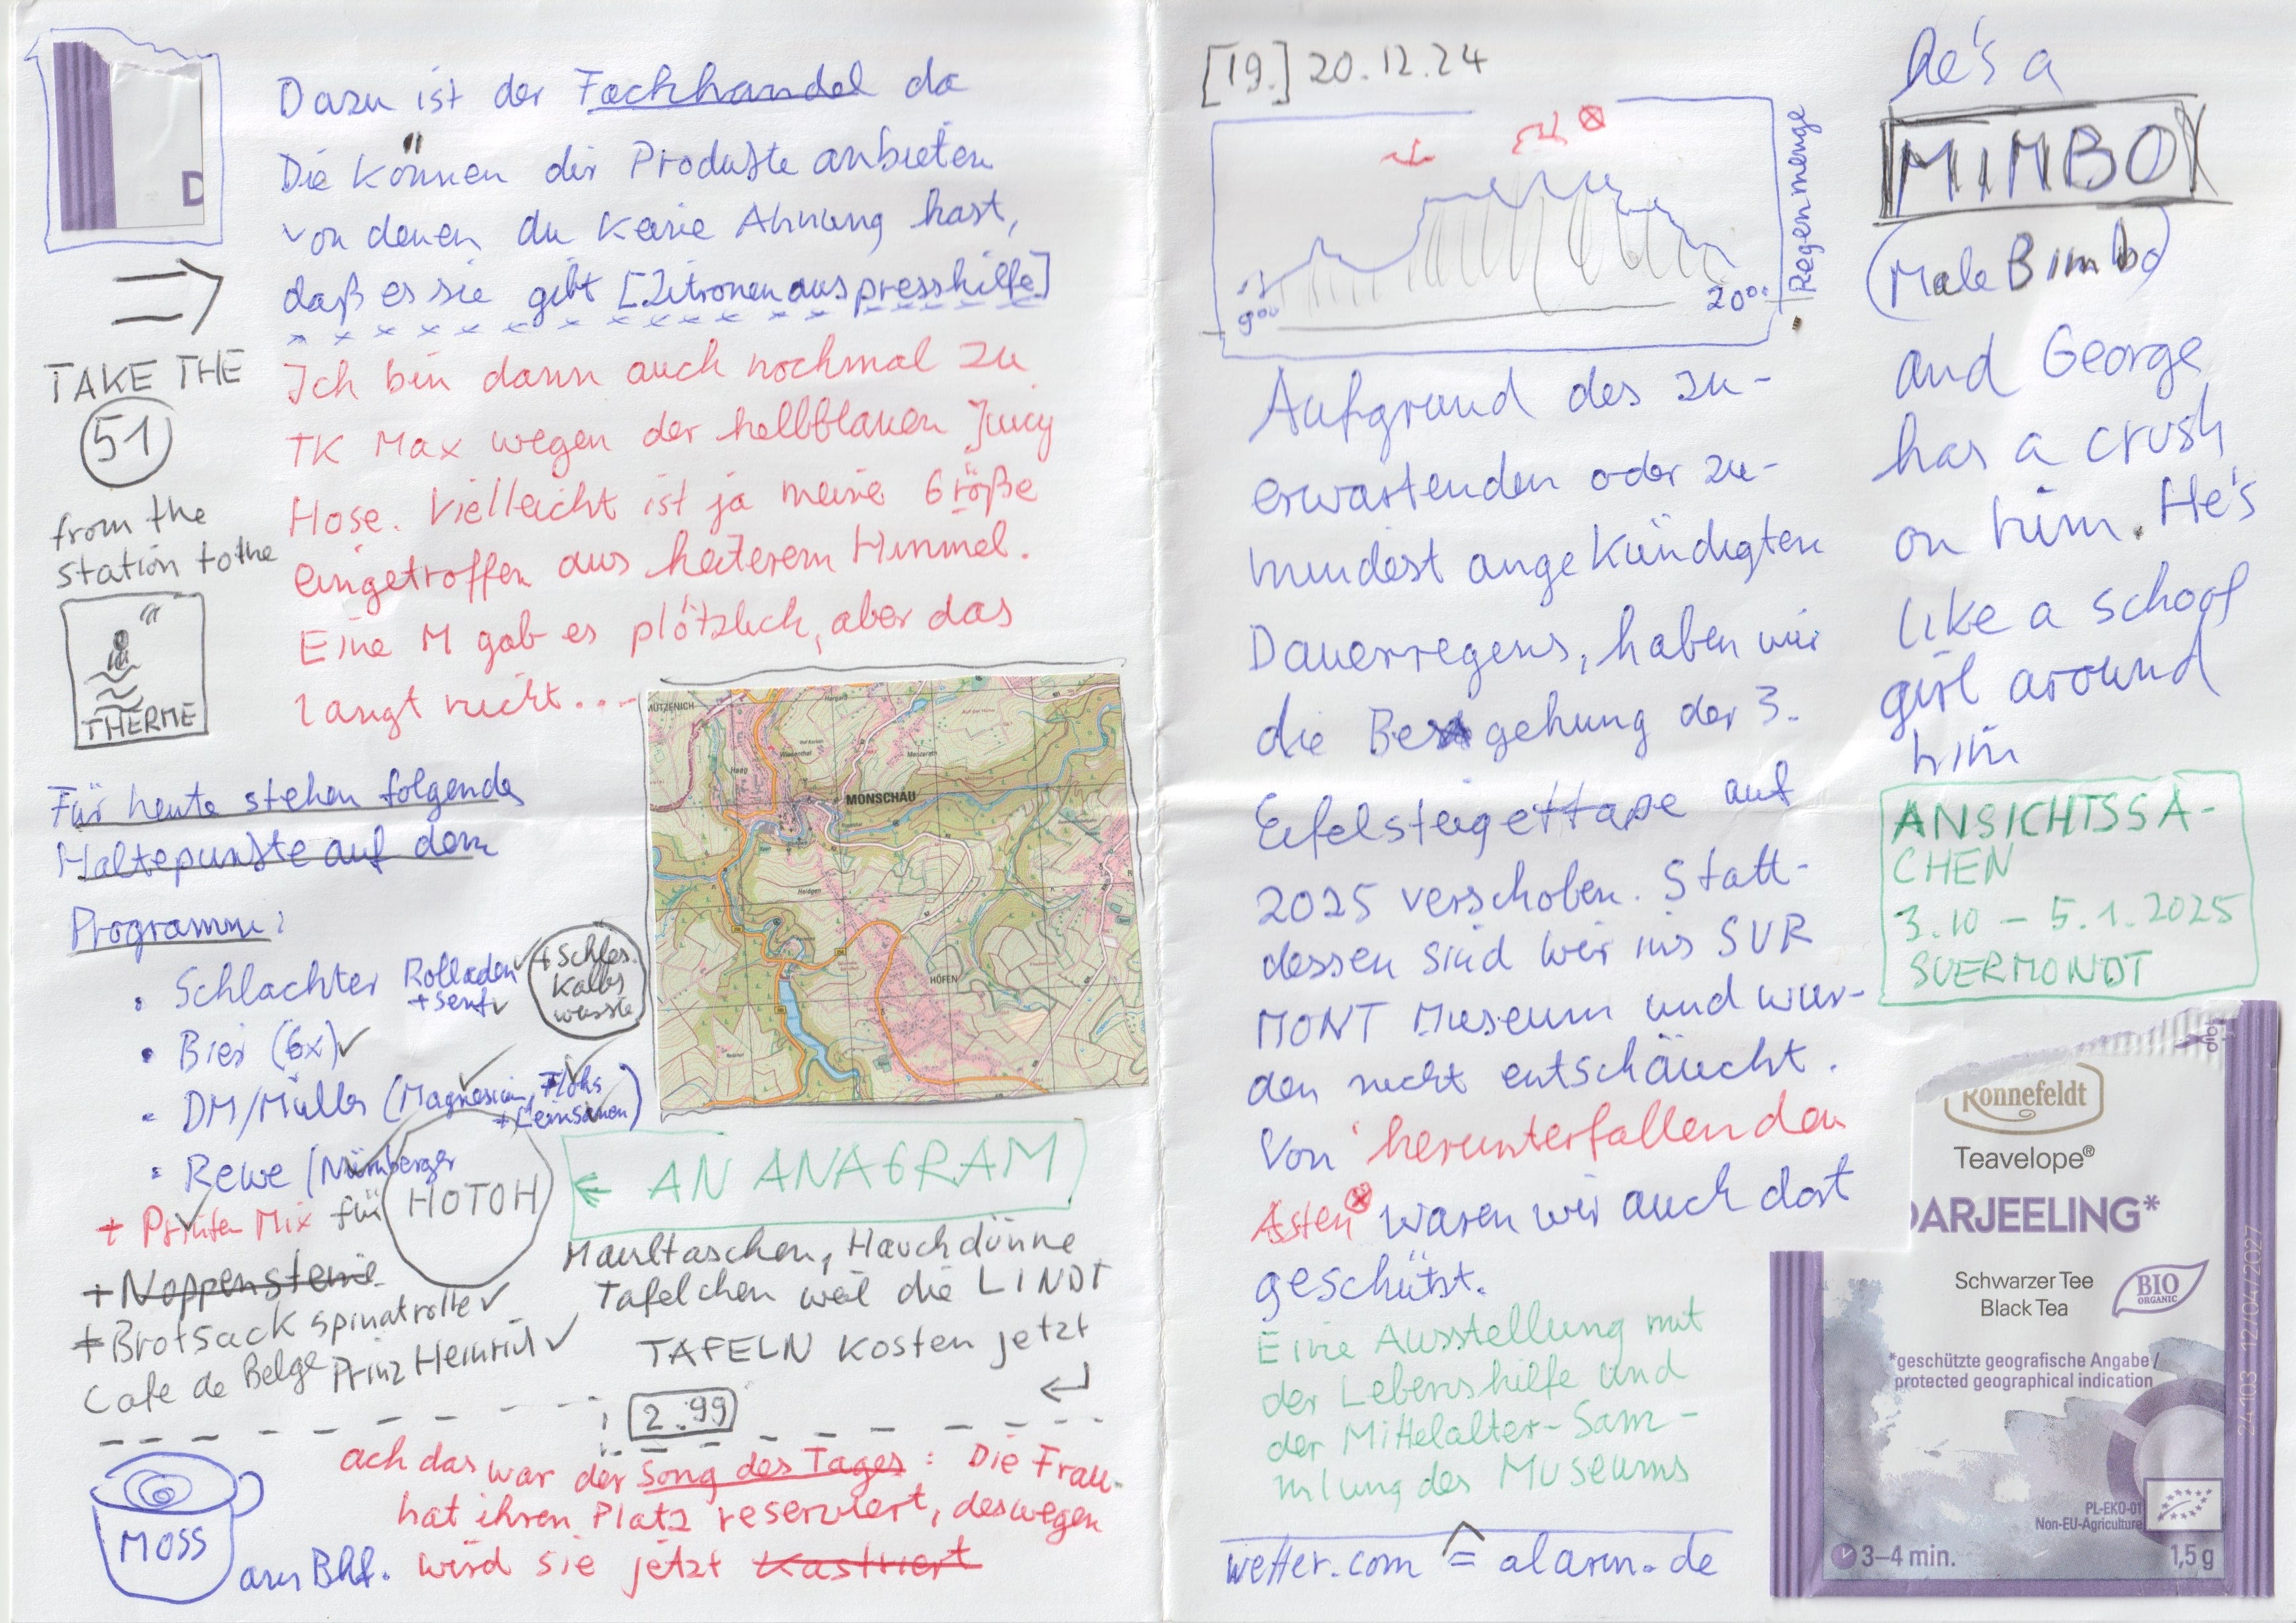 D
Dazu ist der Fachhandel da
Die können dir Produkte anbieten
von denen du keine Ahnung hast,
daß es sie gibt [Zitronenauspresshilfe]
TAKE THE
51
from the
station to the
THERME
Ich bin dann auch nochmal zu
TK Max wegen der hellblauen Juicy
Hose. Vielleicht ist ja meine Größe
eingetroffen aus heiterem Himmel.
Eine M gab es plötzlich, aber das
langt nicht...
MÜTZENICH
Haag
MONSCHAU
HÖFEN
Für heute stehen folgende
Haltepunkte auf dem
Programm:
• Schlachter Rolladen
+ Senf
+ Schles.
Kalbs
wurste
• Bier (6x)
• DM/Müller (Magnesium, Flohs
+ Leinsamen)
• Rewe (Nürnberger
+ Printen Mix für HOTOH
← AN ANAGRAM
+ Noppensteine
+ Brotsack Spinatrolle
Cafe de Belge Prinz Heinrich
Maultaschen, Hauchdünne
Täfelchen weil die LINDT
TAFELN kosten jetzt
2.99
ach das war der Song des Tages: Die Frau
hat ihren Platz reserviert, deswegen
wird sie jetzt kastriert
MOSS
am Bhf.
[19.] 20.12.24
Regenmenge
9⁰⁰
20⁰⁰
Aufgrund des zu-
erwartenden oder zu-
mindest angekündigten
Dauerregens, haben wir
die Begehung der 3.
Eifelsteigettape auf
2025 verschoben. Statt-
dessen sind wir ins SUR
MONT Museum und wur-
den nicht entschäucht.
Von herunterfallenden
Ästen waren wir auch dort
geschützt.
Eine Ausstellung mit
der Lebenshilfe und
der Mittelalter-Sam-
mlung des Museums
wetter.com = alarm.de
he's a
MIMBO
(Male Bimbo)
and George
has a crush
on him. He's
like a school
girl around
him
ANSICHTSSA-
CHEN
3.10 – 5.1.2025
SUERMONDT
Ronnefeldt
Teavelope®
DARJEELING*
Schwarzer Tee
Black Tea
BIO
ORGANIC
*geschützte geografische Angabe /
protected geographical indication
PL-EKO-01
Non-EU-Agriculture
3–4 min.
1,5 g
24103 12/04/2027